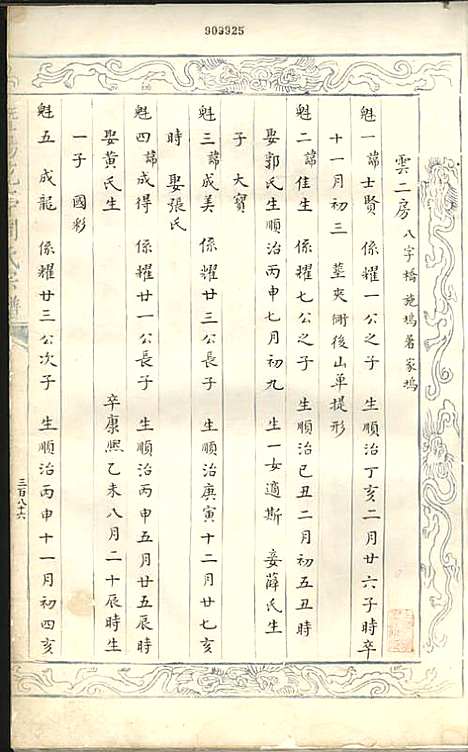 903925
雲二房 八字橋 施塢著家塢
魁一 諱士賢 係耀一公之子 生順治丁亥二月廿六子時卒
十一月初三 塟夾衕後山单提形
魁二 諱佳生 係耀七公之子 生順治己丑二月初五丑時
娶郭氏生順治丙申七月初九 生一女適斯 妾薛氏生
子 大寳
魁三 諱成美 係耀廿三公長子 生順治庚寅十二月廿七亥
時 娶張氏
魁四 諱成得 係耀廿一公長子 生順治丙申五月廿五辰時
娶黃氏生 卒康熙乙未八月二十辰時生
一子 國彩
魁五 成龍 係耀廿三公次子 生順治丙申十一月初四亥
三百八十六